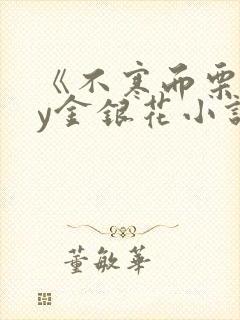 《不寒而栗
y金银花小説
董敏華